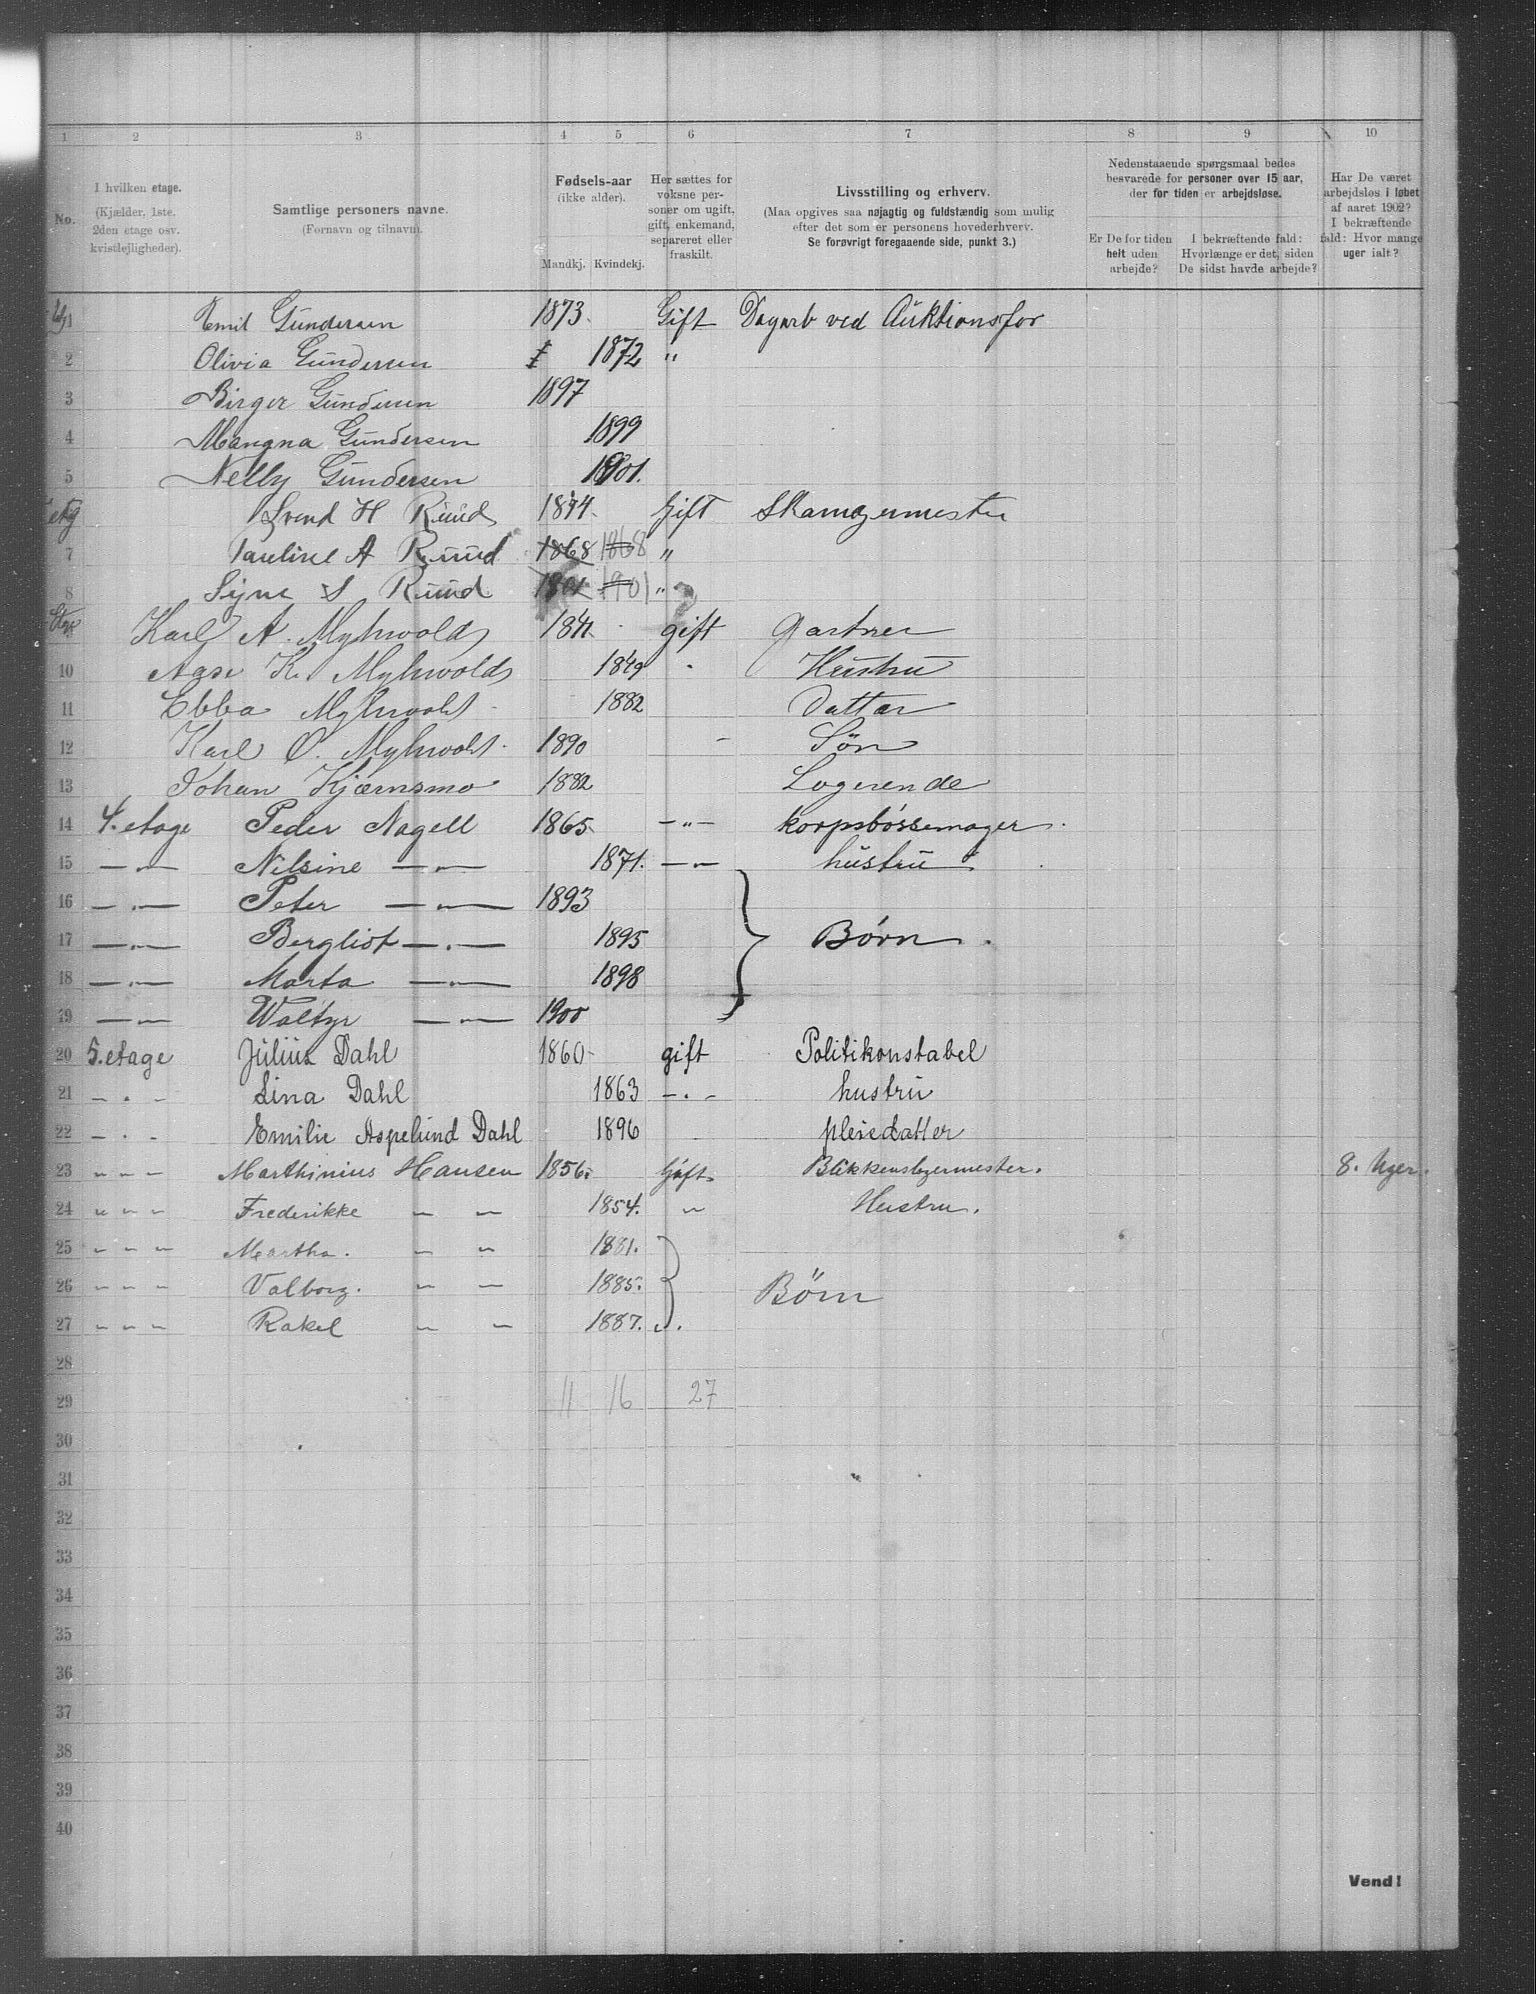 1 2 3 4 5 6 7 8 9 10
No.
I hvilken etage.
(Kjælder, 1ste.
2den etage osv.
kvistlejligheder).
Samtlige personers navne.
(Fornavn og tilnavn).
Fødsels-aar
(ikke alder).
Mandkj. Kvindekj.
Her sættes for
voksne per-
soner om ugift,
gift, enkemand,
separeret eller
fraskilt.
Livsstilling og erhverv.
(Maa opgives saa nøjagtig og fuldstændig som mulig
efter det som er personens hovederhverv.
Se forøvrigt foregaaende side, punkt 3.)
Nedenstaaende spørgsmaal bedes
besvarede for personer over 15 aar,
der for tiden er arbejdsløse.
Er De for tiden
helt uden
arbejde?
I bekræftende fald:
Hvorlænge er det, siden
De sidst havde arbejde?
Har De været
arbejdsløs i løbet
af aaret 1902?
I bekræftende
fald: Hvor mange
uger ialt?
1 Emil Gundersen 1873. Gift Dagarb ved Auktionsfor
2 Olivia Gundersen 1872 "
3 Birger Gundersen 1897
4 Mangna Gundersen 1899
5 Nelly Gundersen 1901.
etg Svend H Ruud 1874. Gift
7 Pauline A Ruud 1868 1868 "
8 Signe S Ruud 1901 1901 " ?
Karl A. Myhrvold 1841. gift Gartner
10 Aase K. Myhrvold 1849 " Hustru
11 Ebba Myhrvold 1882 Datter
12 Karl O. Myhrvold. 1890 - Søn
13 Johan Kjærnsmo 1882 Logerende
14 4. etage Peder Nagell 1865. —"— korpsbøssemager.
15 —"— Nilsine —"— 1871. —"— hustru.
16 —"— Peter —"— 1893
17 —"— Bergliot —"— 1895 } Børn.
18 —"— Marta —"— 1898
19 —"— Waltyr —"— 1900
20 5. etage Julius Dahl 1860 gift Politikonstabel
21 - " - Lina Dahl 1863 - " - hustru
22 - " - Emilie Aspelund Dahl 1896 pleiedatter
23 " " " Marthinius Hansen 1856. Gift. Blikkenslagermester. 8. Uger.
24 " " " Frederikke " " 1854. " Hustru.
25 " " " Martha. " " 1881.
26 " " " Valborg. " " 1885. } Børn
27 " " " Rakel " " 1887. ".
28
29 11 16 27
30
31
32
33
34
35
36
37
38
39
40
Vend!